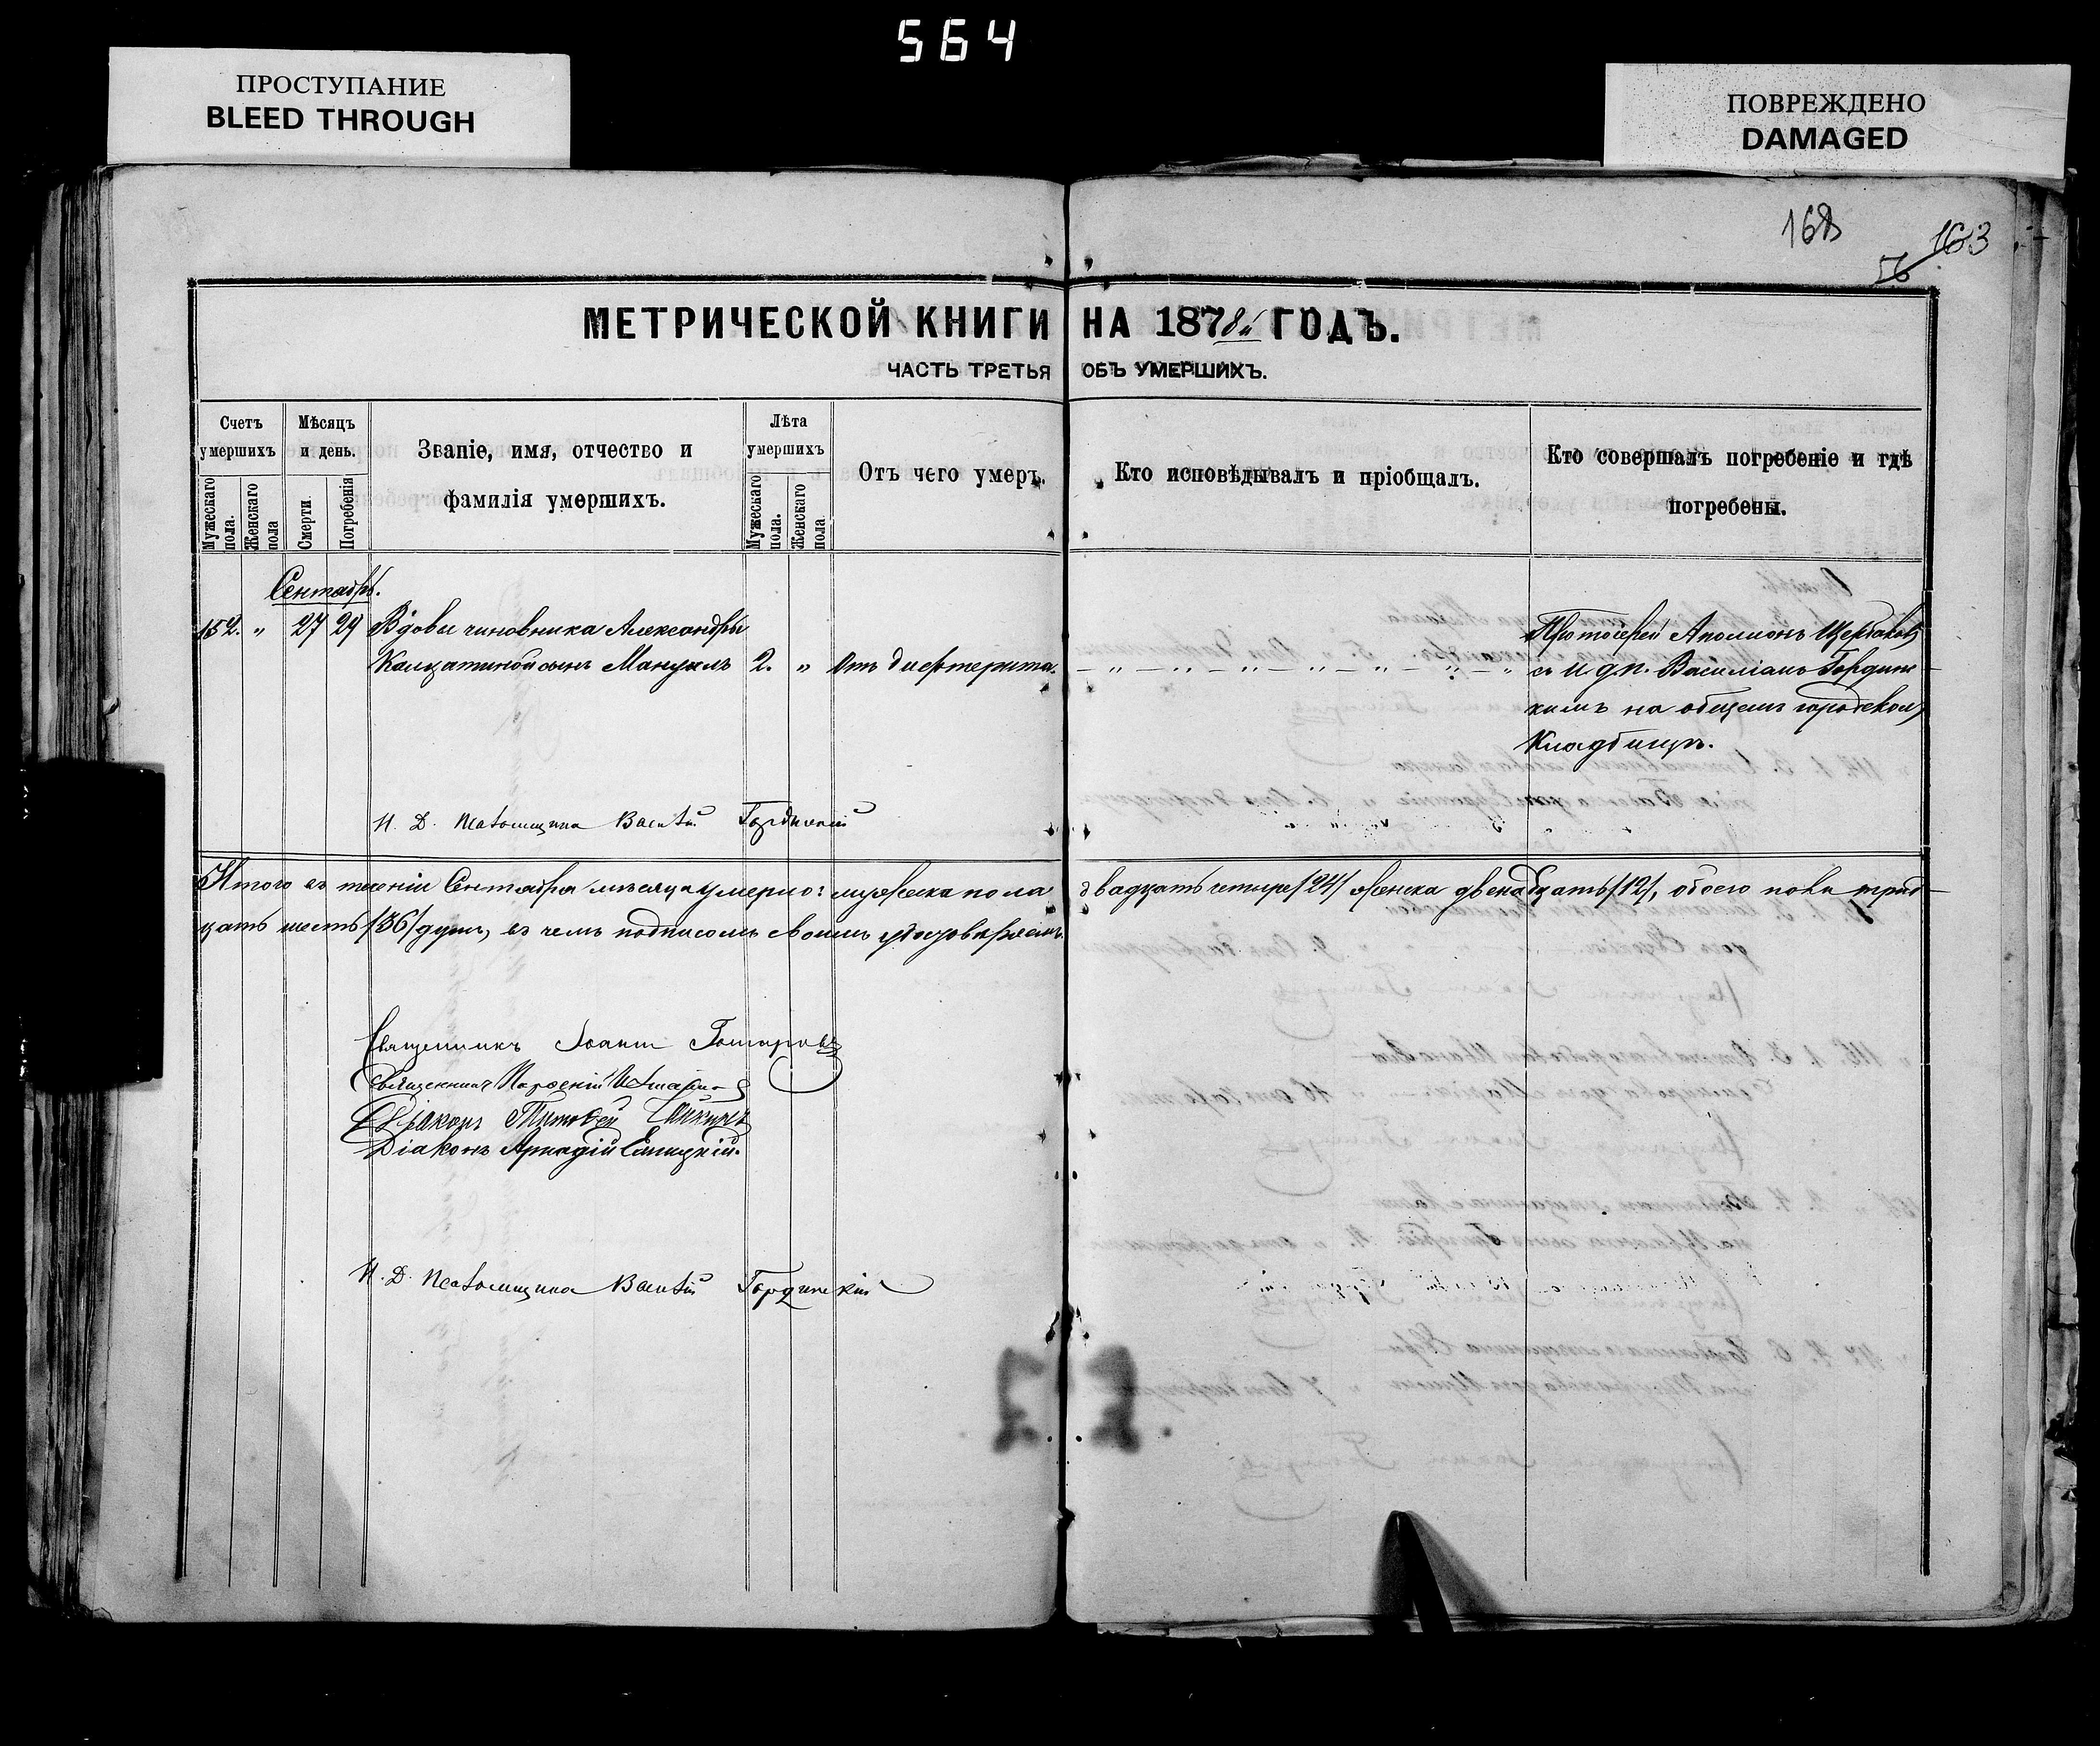 564
ПРОСТУПАНИЕ
BLEED THROUGH
ПОВРЕЖДЕНО
DAMAGED
168
163
56
МЕТРИЧЕСКОЙ КНИГИ НА 1878й ГОДЪ.
ЧАСТЬ ТРЕТЬЯ ОБЪ УМЕРШИХЪ.
Счетъ умершихъ
Мужескаго пола.
Женскаго пола
Мѣсяцъ и день.
Смерти.
Погребенія
Званіе, имя, отчество и
фамилія умершихъ.
Лѣта умершихъ
Мужескаго пола.
Женскаго пола
Отъ чего умеръ.
Кто исповѣдывалъ и пріобщалъ.
Кто совершалъ погребеніе и гдѣ
погребены.
Сентябрь.
152. " 27 29 Вдовы чиновника Александры
сынъ Мануилъ 2. " Отъ дифтерита.
Протоіерей Аполлонъ Щербаковъ
съ И. д. п. Василіемъ Гординс
кимъ на общемъ городскомъ
Кладбищѣ.
И. Д. Псаломщика Василій Гординскій
Итого въ теченіи Сентября мѣсяца умерло: мужеска пола двадцать четыре /24/ женска двенадцать /12/, обоего пола трид
цать шесть /36/ душъ, въ чемъ подписомъ своимъ удостовѣряемъ.
Священникъ Іоаннъ
Священникъ Парѳеній
Діаконъ Тимоѳей
Діаконъ Аркадій
И. Д. Псаломщика Василій Гординскій